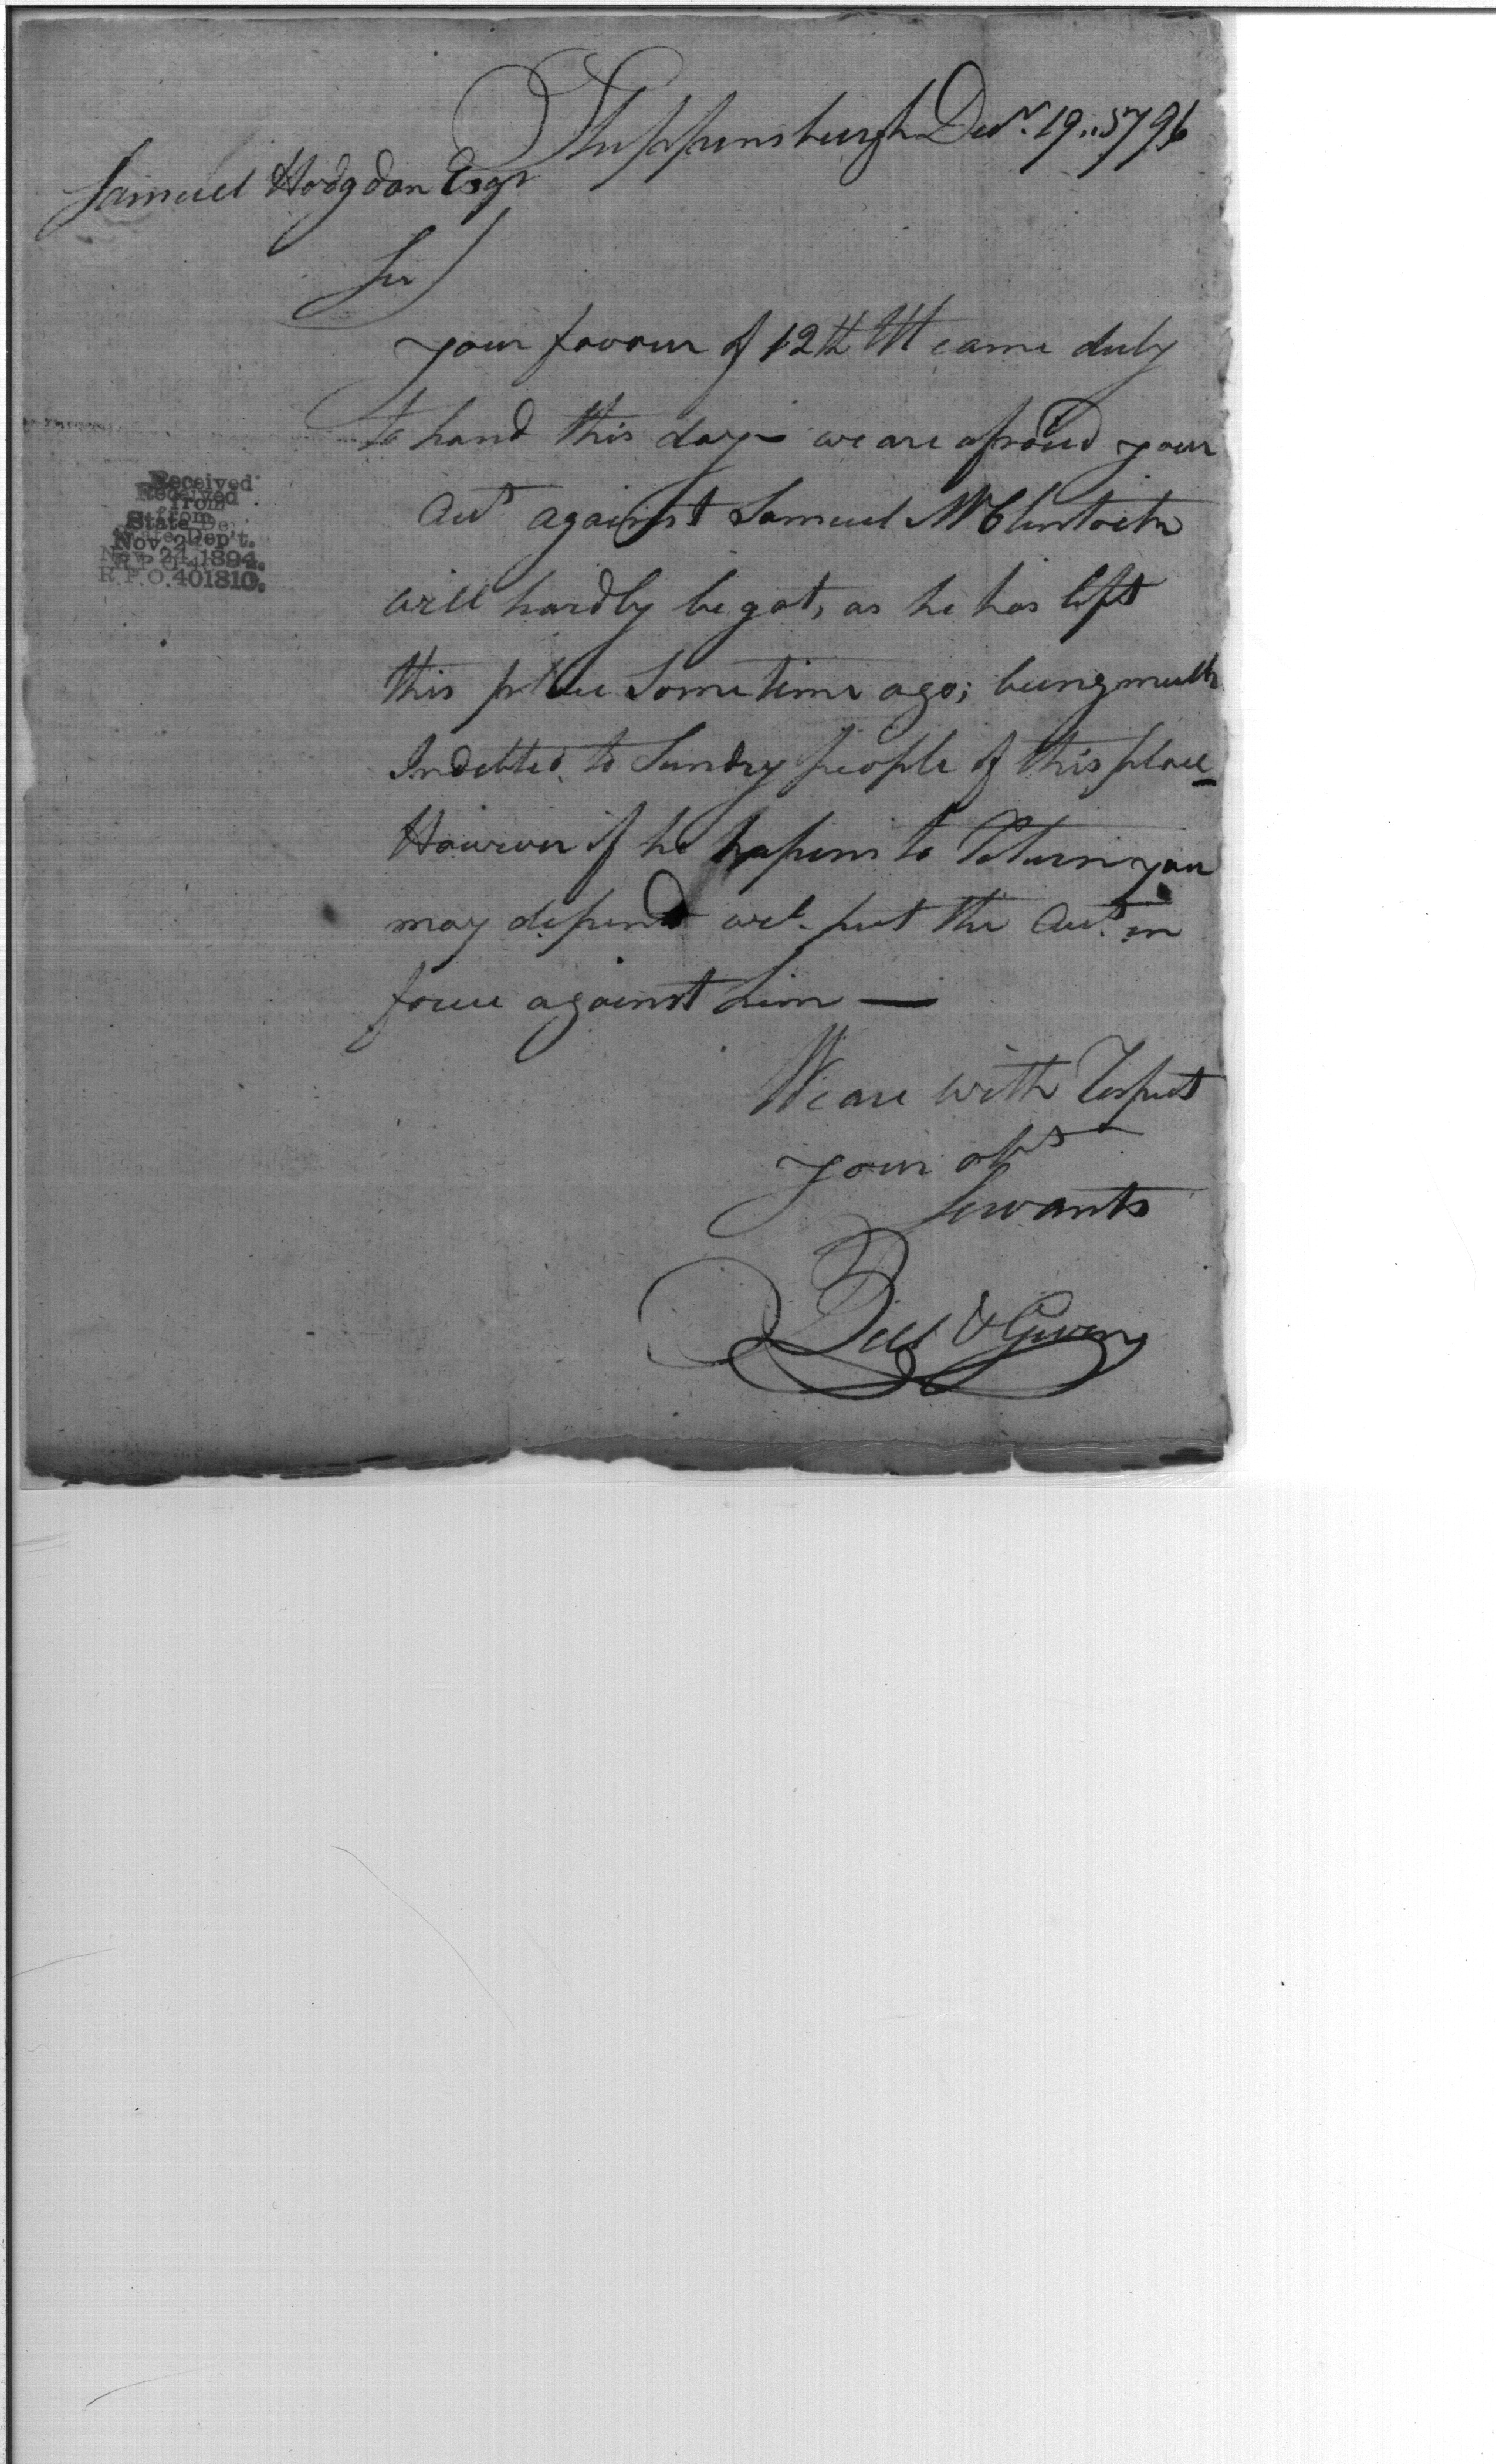 Shippensburgh Decr. 19..1796
Samuel Hodgdon Esqr
Sir/
your favour of 12th Ult came duly
to hand this day - we are afraid your
Acct against Samuel McClintock
will hardly be got, as he has left
this place Some time ago; being much
Indebted to Sundry people of this place
However if he hapens to Return you
may depend wel put the Acct. in
force against him —
We are with Respect
your obt
Servants
Bell & Given
Received
from
State Dep't.
Nov. 24, 1894.
R.P.O. 401810.